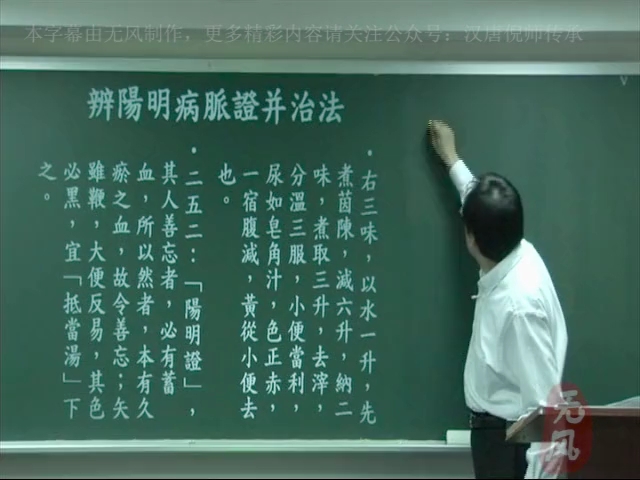 本字幕由无风制作，更多精彩内容请关注公众号：汉唐倪师传承
辨陽明病脈證并治法
·右三味，以水一升，先
煮茵陳，減六升，納二
味，煮取三升，去滓，
分溫三服，小便當利，
尿如皂角汁，色正赤，
一宿腹減，黃從小便去
也。
·二五二：「陽明證」，
其人善忘者，必有蓄
血，所以然者，本有久
瘀之血，故令善忘；矢
雖鞕，大便反易，其色
必黑，宜「抵當湯」下
之。
无风